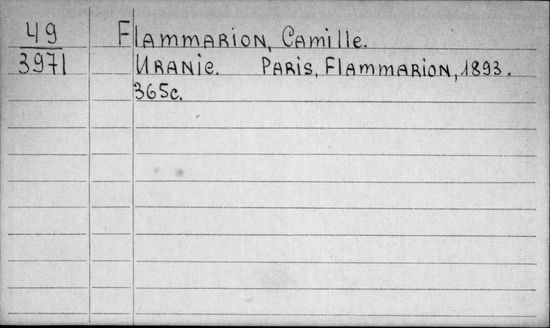 49 Flammarion, Camille.
3971 Uranie. Paris, Flammarion, 1893.
365c.